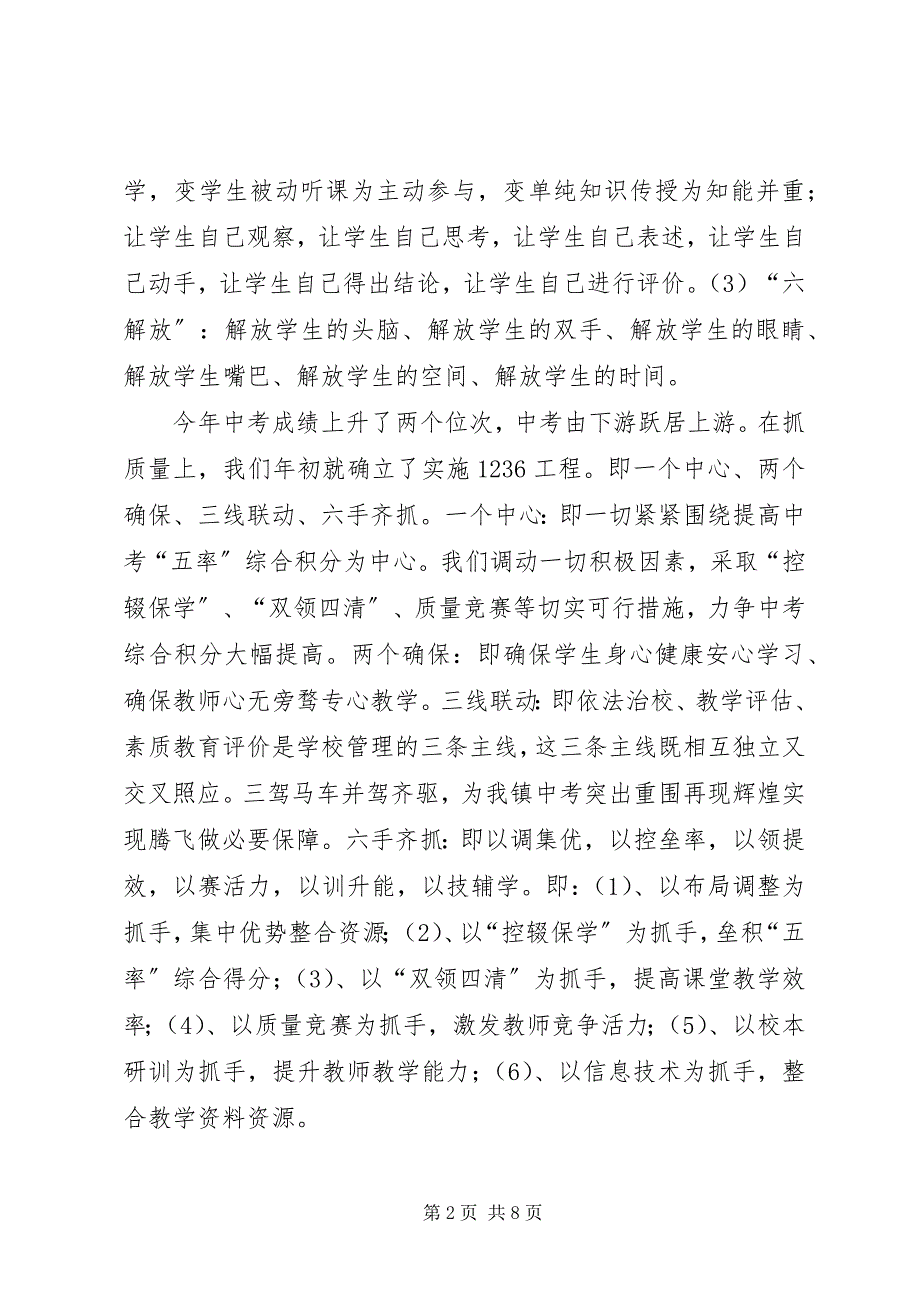 学，变学生被动听课为主动参与，变单纯知识传授为知能并重；
让学生自己观察，让学生自己思考，让学生自己表述，让学生自
己动手，让学生自己得出结论，让学生自己进行评价。（3）“六
解放〞：解放学生的头脑、解放学生的双手、解放学生的眼睛、
解放学生嘴巴、解放学生的空间、解放学生的时间。
今年中考成绩上升了两个位次，中考由下游跃居上游。在抓
质量上，我们年初就确立了实施1236工程。即一个中心、两个
确保、三线联动、六手齐抓。一个中心：即一切紧紧围绕提高中
考“五率〞综合积分为中心。我们调动一切积极因素，采取“控
辍保学〞、“双领四清〞、质量竞赛等切实可行措施，力争中考
综合积分大幅提高。两个确保：即确保学生身心健康安心学习、
确保教师心无旁骛专心教学。三线联动：即依法治校、教学评估、
素质教育评价是学校管理的三条主线，这三条主线既相互独立又
交叉照应。三驾马车并驾齐驱，为我镇中考突出重围再现辉煌实
现腾飞做必要保障。六手齐抓：即以调集优，以控垒率，以领提
效，以赛活力，以训升能，以技辅学。即：（1）、以布局调整为
抓手，集中优势整合资源；（2）、以“控辍保学〞为抓手，垒积“五
率〞综合得分；（3）、以“双领四清〞为抓手，提高课堂教学效
率；（4）、以质量竞赛为抓手，激发教师竞争活力；（5）、以校本
研训为抓手，提升教师教学能力；（6）、以信息技术为抓手，整
合教学资料资源。
第 2 页 共 8 页